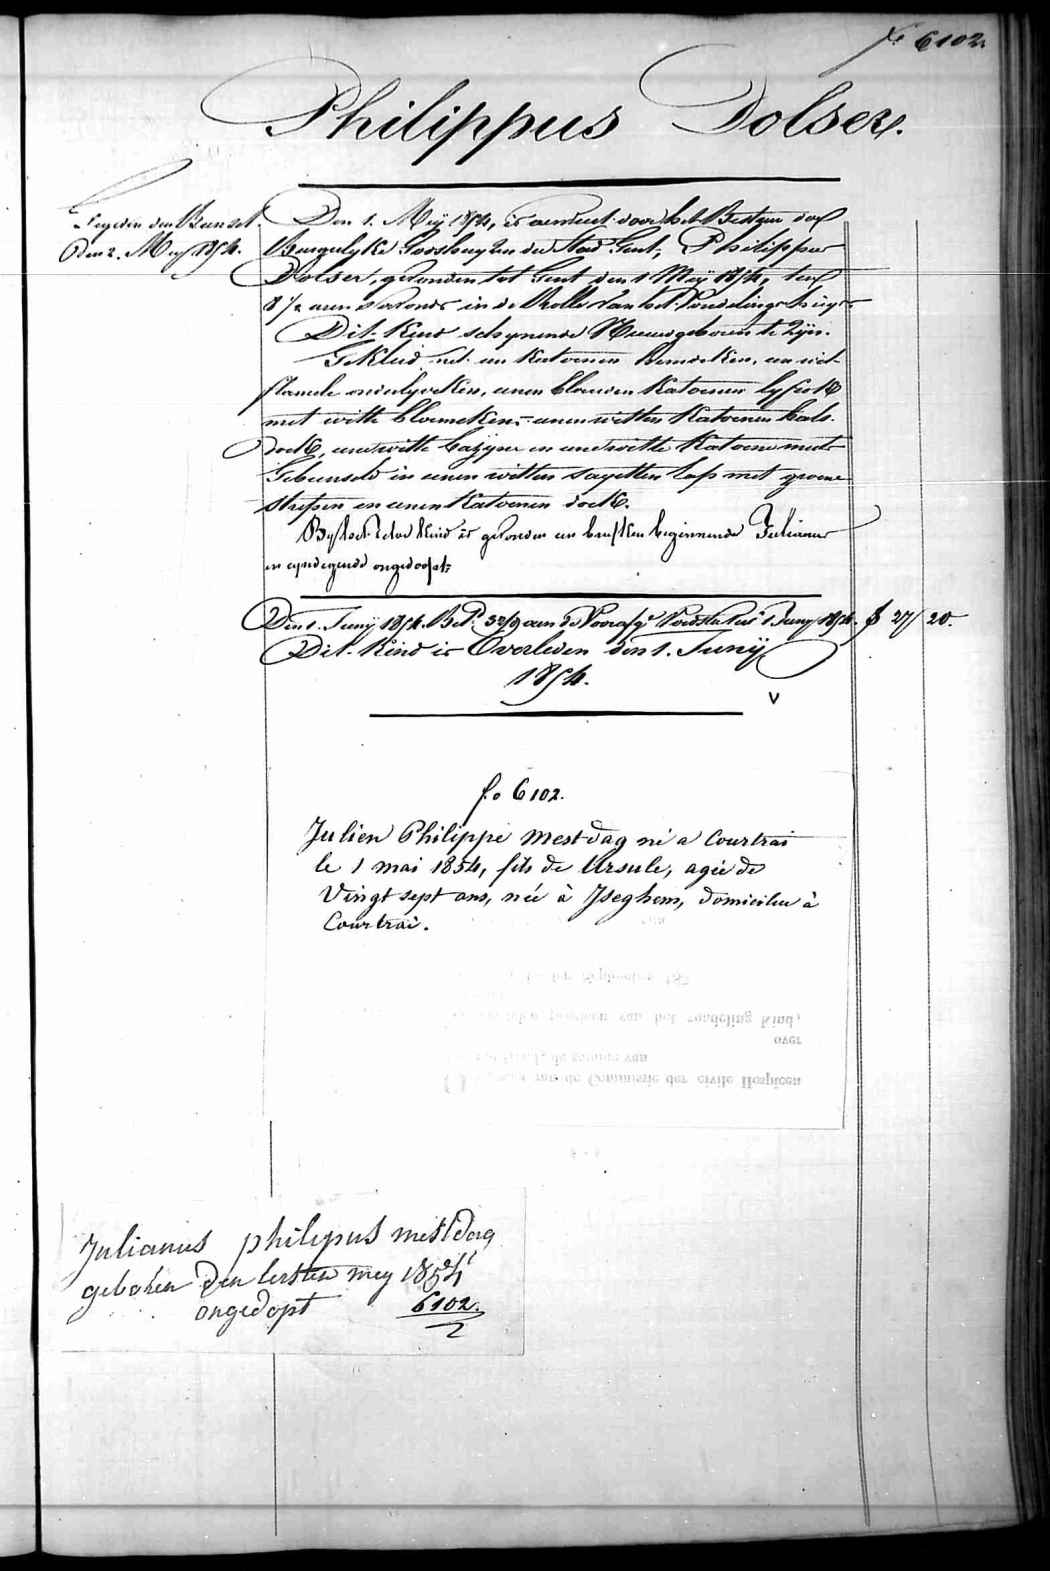 fo 6102.
Philippus Dolser.
Den 2. Mey 1854.
Den 1. Meij 1854, is aenveerd door het Bestuer der
Burgerlyke Godshuyzen der Stad Gent, Philippus
Dolser, gevonden tot Gent den 1 Meij 1854, ten
8 1/2 uren s'avonds in de Rolle van het Vondelingshuys
Dit Kind schynende Nieuwgeboren te zijn.
Gekleed met een Katoenen hemdeken, een wit
flanele onderlyveken, eenen blauwen Katoenen lyfrok
met witte bloemekens, eenen witten Katoenen hals-
doek, eene witte bazyne en eene witte Katoene muts
Gebunseld in eenen witten sayetten lap met groene
strepen en eenen Katoenen doek.
By het zelve kind is gevonden een briefken beginnende Julianus
en eyndigende ongedoopt.
Den 1. Junij 1854. Bet. aen de Voorsz. Voedster 1 Juny 1854. f 27/ 20.
Dit Kind is Overleden den 1. Junij
1854.
fo 6102.
Julien Philippe Mestdag né a Courtrai
le 1 mai 1854, fils de Ursule, agée de
Vingt sept ans, née à Iseghem, domiciliée à
Courtrai.
September 187
van het vondeling kind,
over
de somme van
de Commisie der civile Hospicen
Julianus philipus mestdag
geboren den eersten mey 1854
ongedopt 6102.